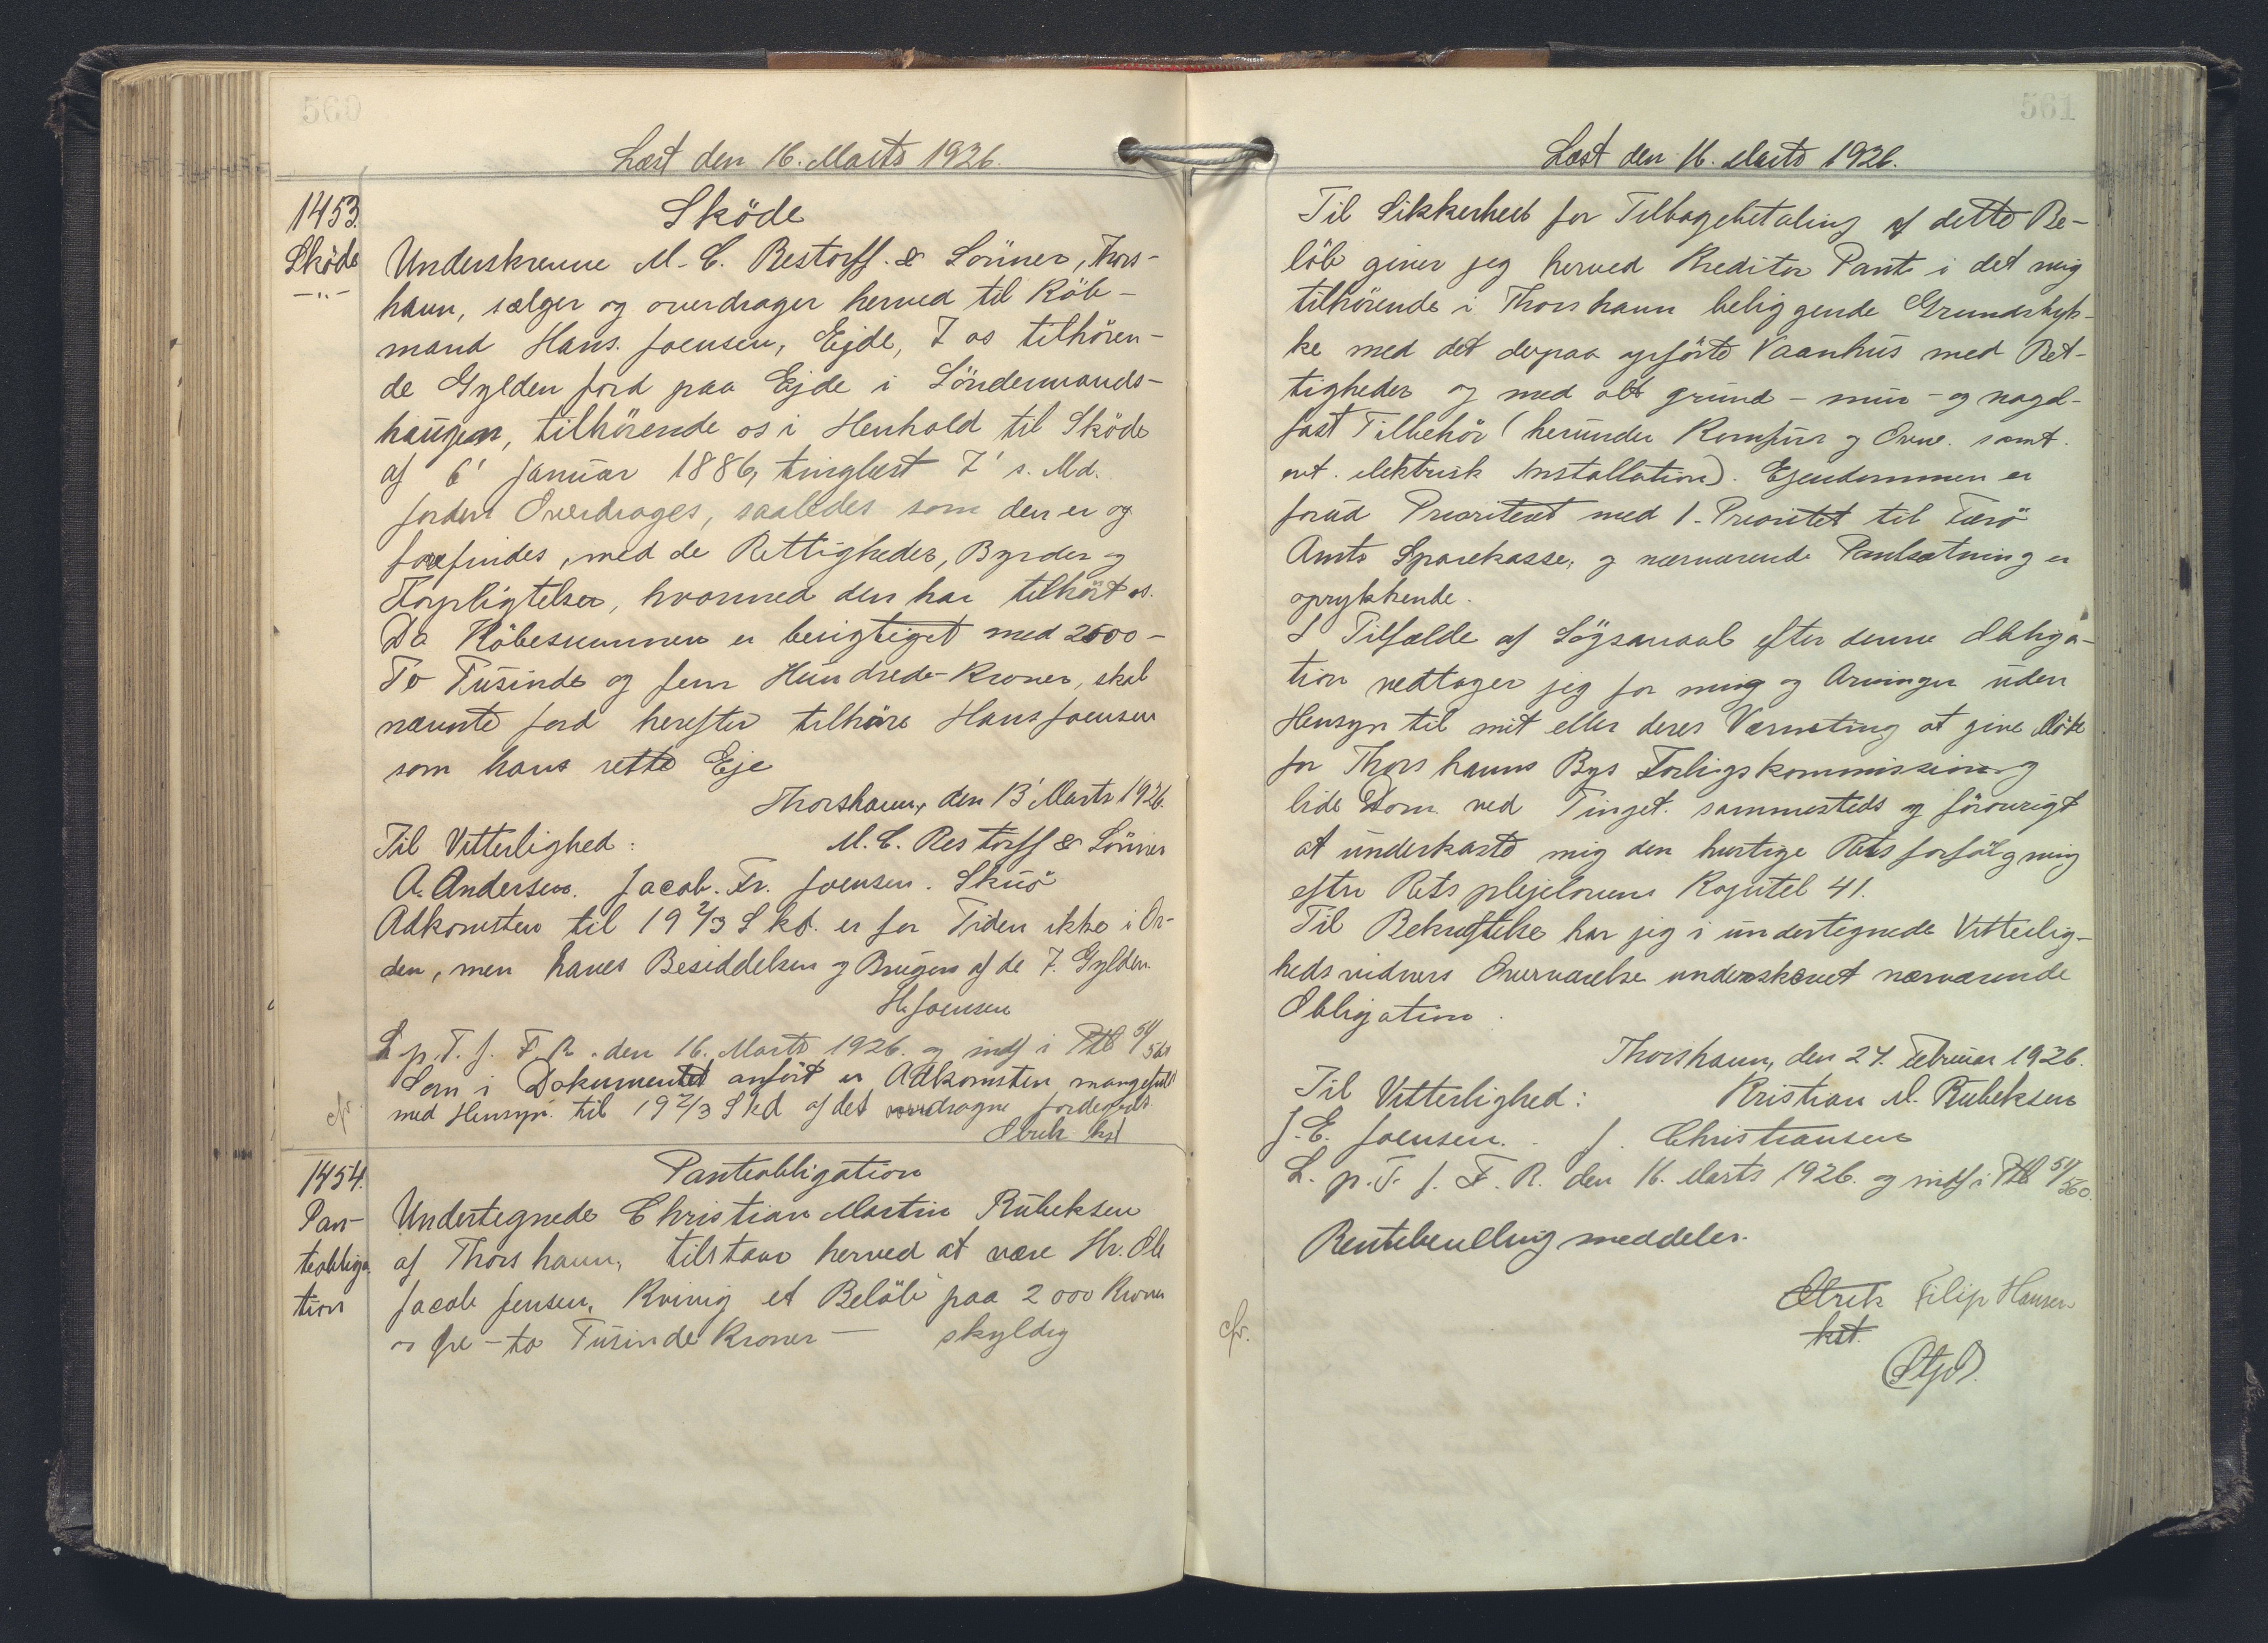 560
Læst den 16. Marts 1926.
1453.
Sköde
-"-
Sköde
Underskrevne M. C. Restorff & Sönner, Thors-
havn, sælger og overdrager herved til Köb-
mand Hans Joensen, Ejde, 7 os tilhören-
de Gylden Jord paa Ejde i Söndermands-
haugen, tilhörende os i Henhold til Sköde
af 6' Januar 1886, tinglæst 7' s. Md.
Jorden Overdrages, saaledes som den er og
forefindes, med de Rettigheder, Byrder og
Forpligtelser, hvormed den har tilhört os.
Da Köbesummen er berigtiget med 2500 -
To Tusinde og fem Hundrede Kroner, skal
nævnte Jord herefter tilhöre Hans Joensen
som hans rette Eje
Thorshavn, den 13' Marts 1926.
Til Vitterlighed: M. C. Restorff & Sönner
A. Andersen. Jacob. Fr. Joensen. Skuö
Adkomsten til 19 2/3 Skd. er for Tiden ikke i Or-
den, men haves Besiddelsen og Brugen af de 7. Gylden.
H. Joensen
L. p. T. f. F. R. den 16. Marts 1926. og indf i Ptb 54/561
Som i Dokumentet anfört er Adkomsten mangefuld
med Hensyn til 19 2/3 Skd af det overdragne Jordegods.
cfr.
kst
1454.
Pan-
teobliga
tion
Panteobligation
Undertegnede Christian Martin Rubeksen
af Thorshavn, tilstaar herved at være Hr. Ole
Jacob Jensen, Kvivig et Belöb paa 2000 Kroner
Öre - to Tusinde Kroner - skyldig
561
Læst den 16. Marts 1926.
Til Sikkerhed for Tilbagebetaling af dette Be-
löb giver jeg herved Kreditor Pant i det mig
tilhörende i Thorshavn beliggende Grundstyk-
ke med det derpaa opförte Vaanhus med Ret-
tigheder og med alt grund - mur - og nagel-
fast Tilbehör (herunder Komfur og Ovne. samt
evt. elektrisk Installation). Ejendommen er
forud Prioriteret med 1. Prioritet til Færö
Amts Sparekasse, og nærværende Pantsætning er
oprykkende.
I Tilfælde af Sögsmaal efter denne Obliga-
tion vedtager jeg for mig og Arvinger uden
Hensyn til mit eller deres Værneting at give Möde
for Thorshavns Bys Forligskommission og
lide Dom ved Tinget sammesteds og förövrigt
at underkaste mig den hurtige Retsforfölgning
efter Retsplejelovens Kapitel 41.
Til Bekræftelse har jeg i undertegnede Vitterlig-
hedsvidners Overværelse underskrevet nærværende
Obligation.
Thorshavn, den 24. Februar 1926.
Til Vitterlighed: Kristian M. Rubeksen
J. E. Joensen. J. Christiansen
L. p. T. f. F. R. den 16. Marts 1926. og indf i Ptb 54/560.
Rentebevilling meddeles.
Filip Hansen
kst.
cfr.